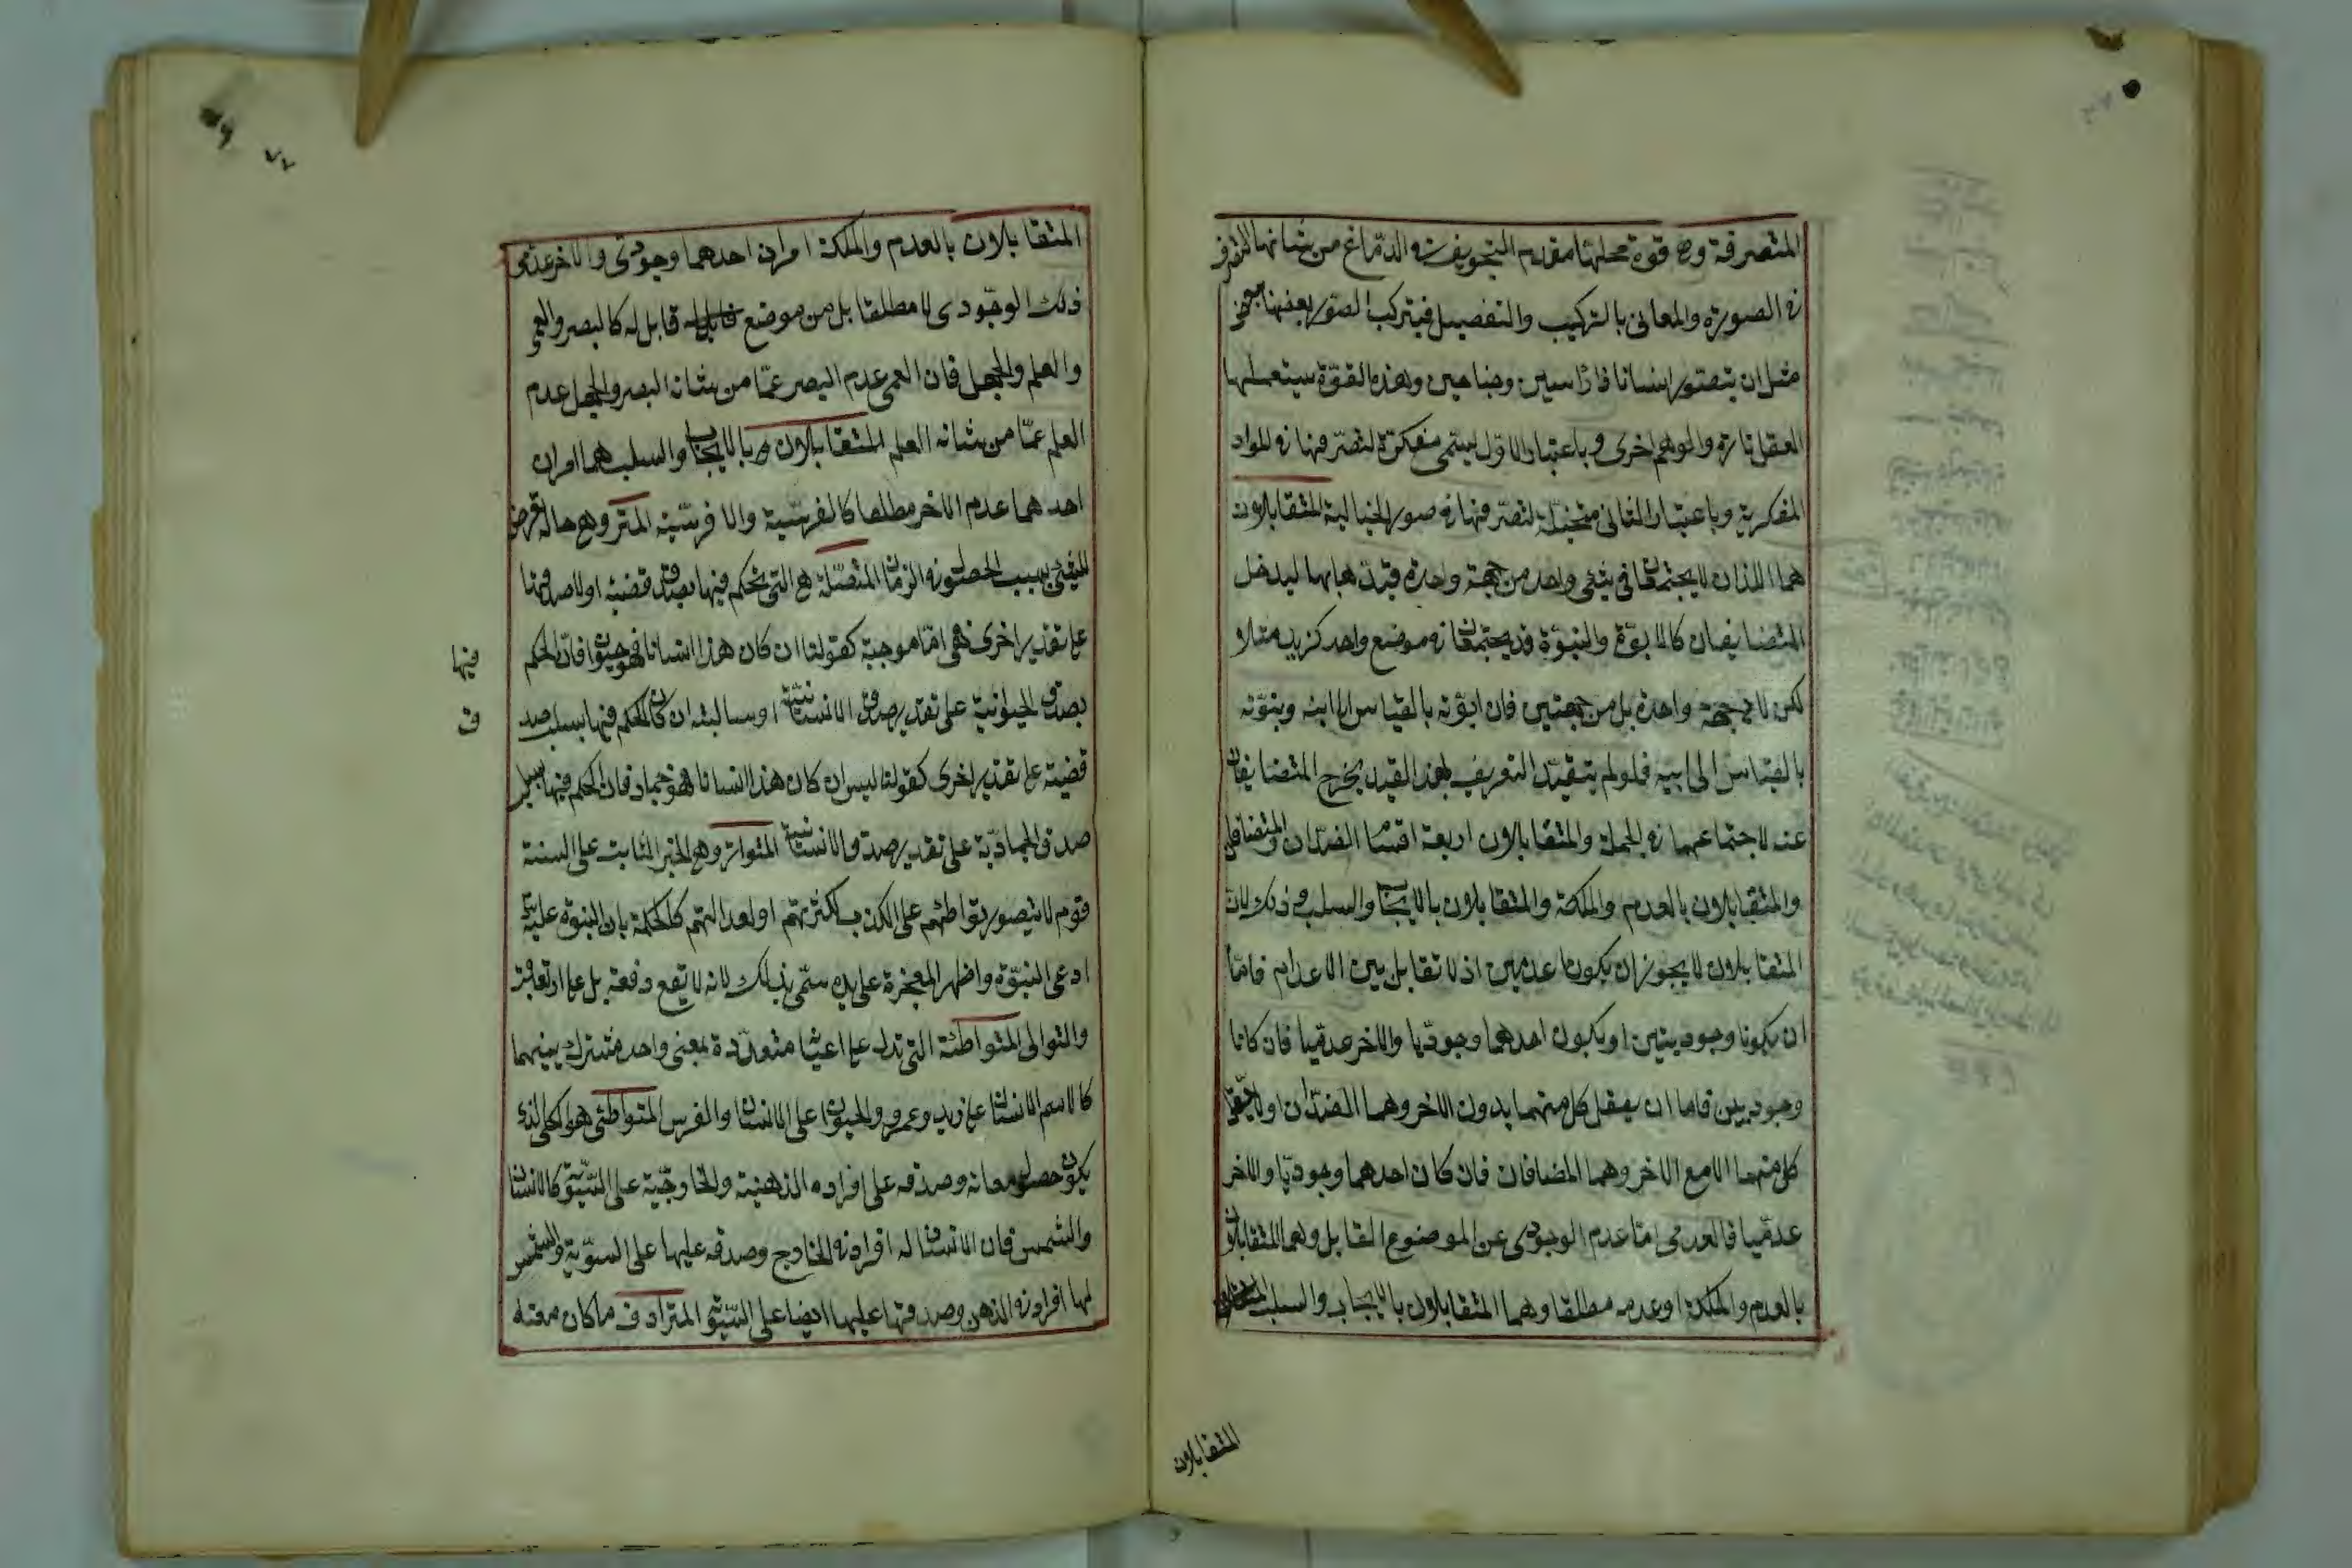 المتصرفة وهى قوة محلها مقدم التجويف فى الدماغ من شانها التصرف
فى الصورة والمعانى بالتركيب والتفصيل فيتركب الصور بعضها ببعض
مثل ان يتصور انسانا ذا راسين وجناحين وهذه القوة يستعملها
العقل تارة والوهم اخرى وباعتبار الاول يسمى مفكرة لتصرفها فى المواد
الفكرية وباعتبار الثانى متخيلة لتصرفها فى صور الخيالية المتقابلان
هما اللذان لا يجتمعان فى شئ واحد من جهة واحدة قيد هابها ليدخل
المتضايفان كالابوة والبنوة قد يجتمعان فى موضع واحد كزيد مثلا
لكن لا من جهة واحدة بل من جهتين فان ابوته بالقياس الى ابنه وبنوته
بالقياس الى ابيه فلو لم يتقيد التعريف بهذا القيد يخرج المتضايفان
عنه لاجتماعهما فى الجملة والمتقابلان اربعة اقسام الضدان والمتضايفان
والمتقابلان بالعدم والملكة والمتقابلان بالايجاب والسلب وذلك لان
المتقابلان لا يجوز ان يكونا عدمين اذ لا تقابل بين الاعدام فاما
ان يكونا وجوديين او يكون احدهما وجوديا والاخر عدميا فان كانا
وجوديين فاما ان يعقل كل منهما بدون الاخر وهما الضدان او لا يعقل
كل منهما الا مع الاخر وهما المضافان فان كان احدهما وجوديا والاخر
عدميا فالعدمى اما عدم الوجودى عن الموضوع القابل وهما المتقابلان
بالعدم والملكة او عدمه مطلقا وهما المتقابلان بالايجاب والسلب
المتقابلان
المتقابلان بالعدم والملكة امران احدهما وجودى والاخر عدمى
ذلك الوجودى لا مطلقا بل من موضع قابل له كالبصر والعمى
والعلم والجهل فان العمى عدم البصر عما من شانه البصر والجهل عدم
العلم عما من شانه العلم المتقابلان بالايجاب والسلب هما امران
احدهما عدم الاخر مطلقا كالفرسية والا فرسية المتى وهى حالة تعرض
للشئ بسبب الحصول فى الزمان المتصلة هى التى يحكم فيها بصدق قضية او لا صدقها
على تقدير اخرى فهى اما موجبة كقولنا ان كان هذا انسانا فهو حيوان فان الحكم
فيها
بصدق الحيوانية على تقدير صدق الانسانية او سالبة ان كان الحكم فيها بسلب صد
ق
قضية على تقدير اخرى كقولنا ليس ان كان هذا انسانا فهو جماد فان الحكم فيها بسلب
صدق الجمادية على تقدير صدق الانسانية المتواتر وهو الخبر الثابت على السنة
قوم لا يتصور تواطئهم على الكذب لكثرتهم او لعدالتهم كالحكم بان النبى عليه
ادعى النبوة واظهر المعجزة على يده سمى بذلك لانه لا يقع دفعة بل على التعاقب
والتوالى المتواطئة التى تدل على اعيان متعددة بمعنى واحد مشترك بينهما
كالاسم الانسان على زيد وعمرو والحيوان على الانسان والفرس المتواطئ هو الكلى الذى
يكون حصول معانه وصدقه على افراده الذهنية والخارجية على السوية كالانسان
والشمس فان الانسان له افراد فى الخارج وصدقه عليها على السوية والشمس
لها افراد فى الذهن وصدقها عليها ايضا على السوية المترادف ما كان معناه